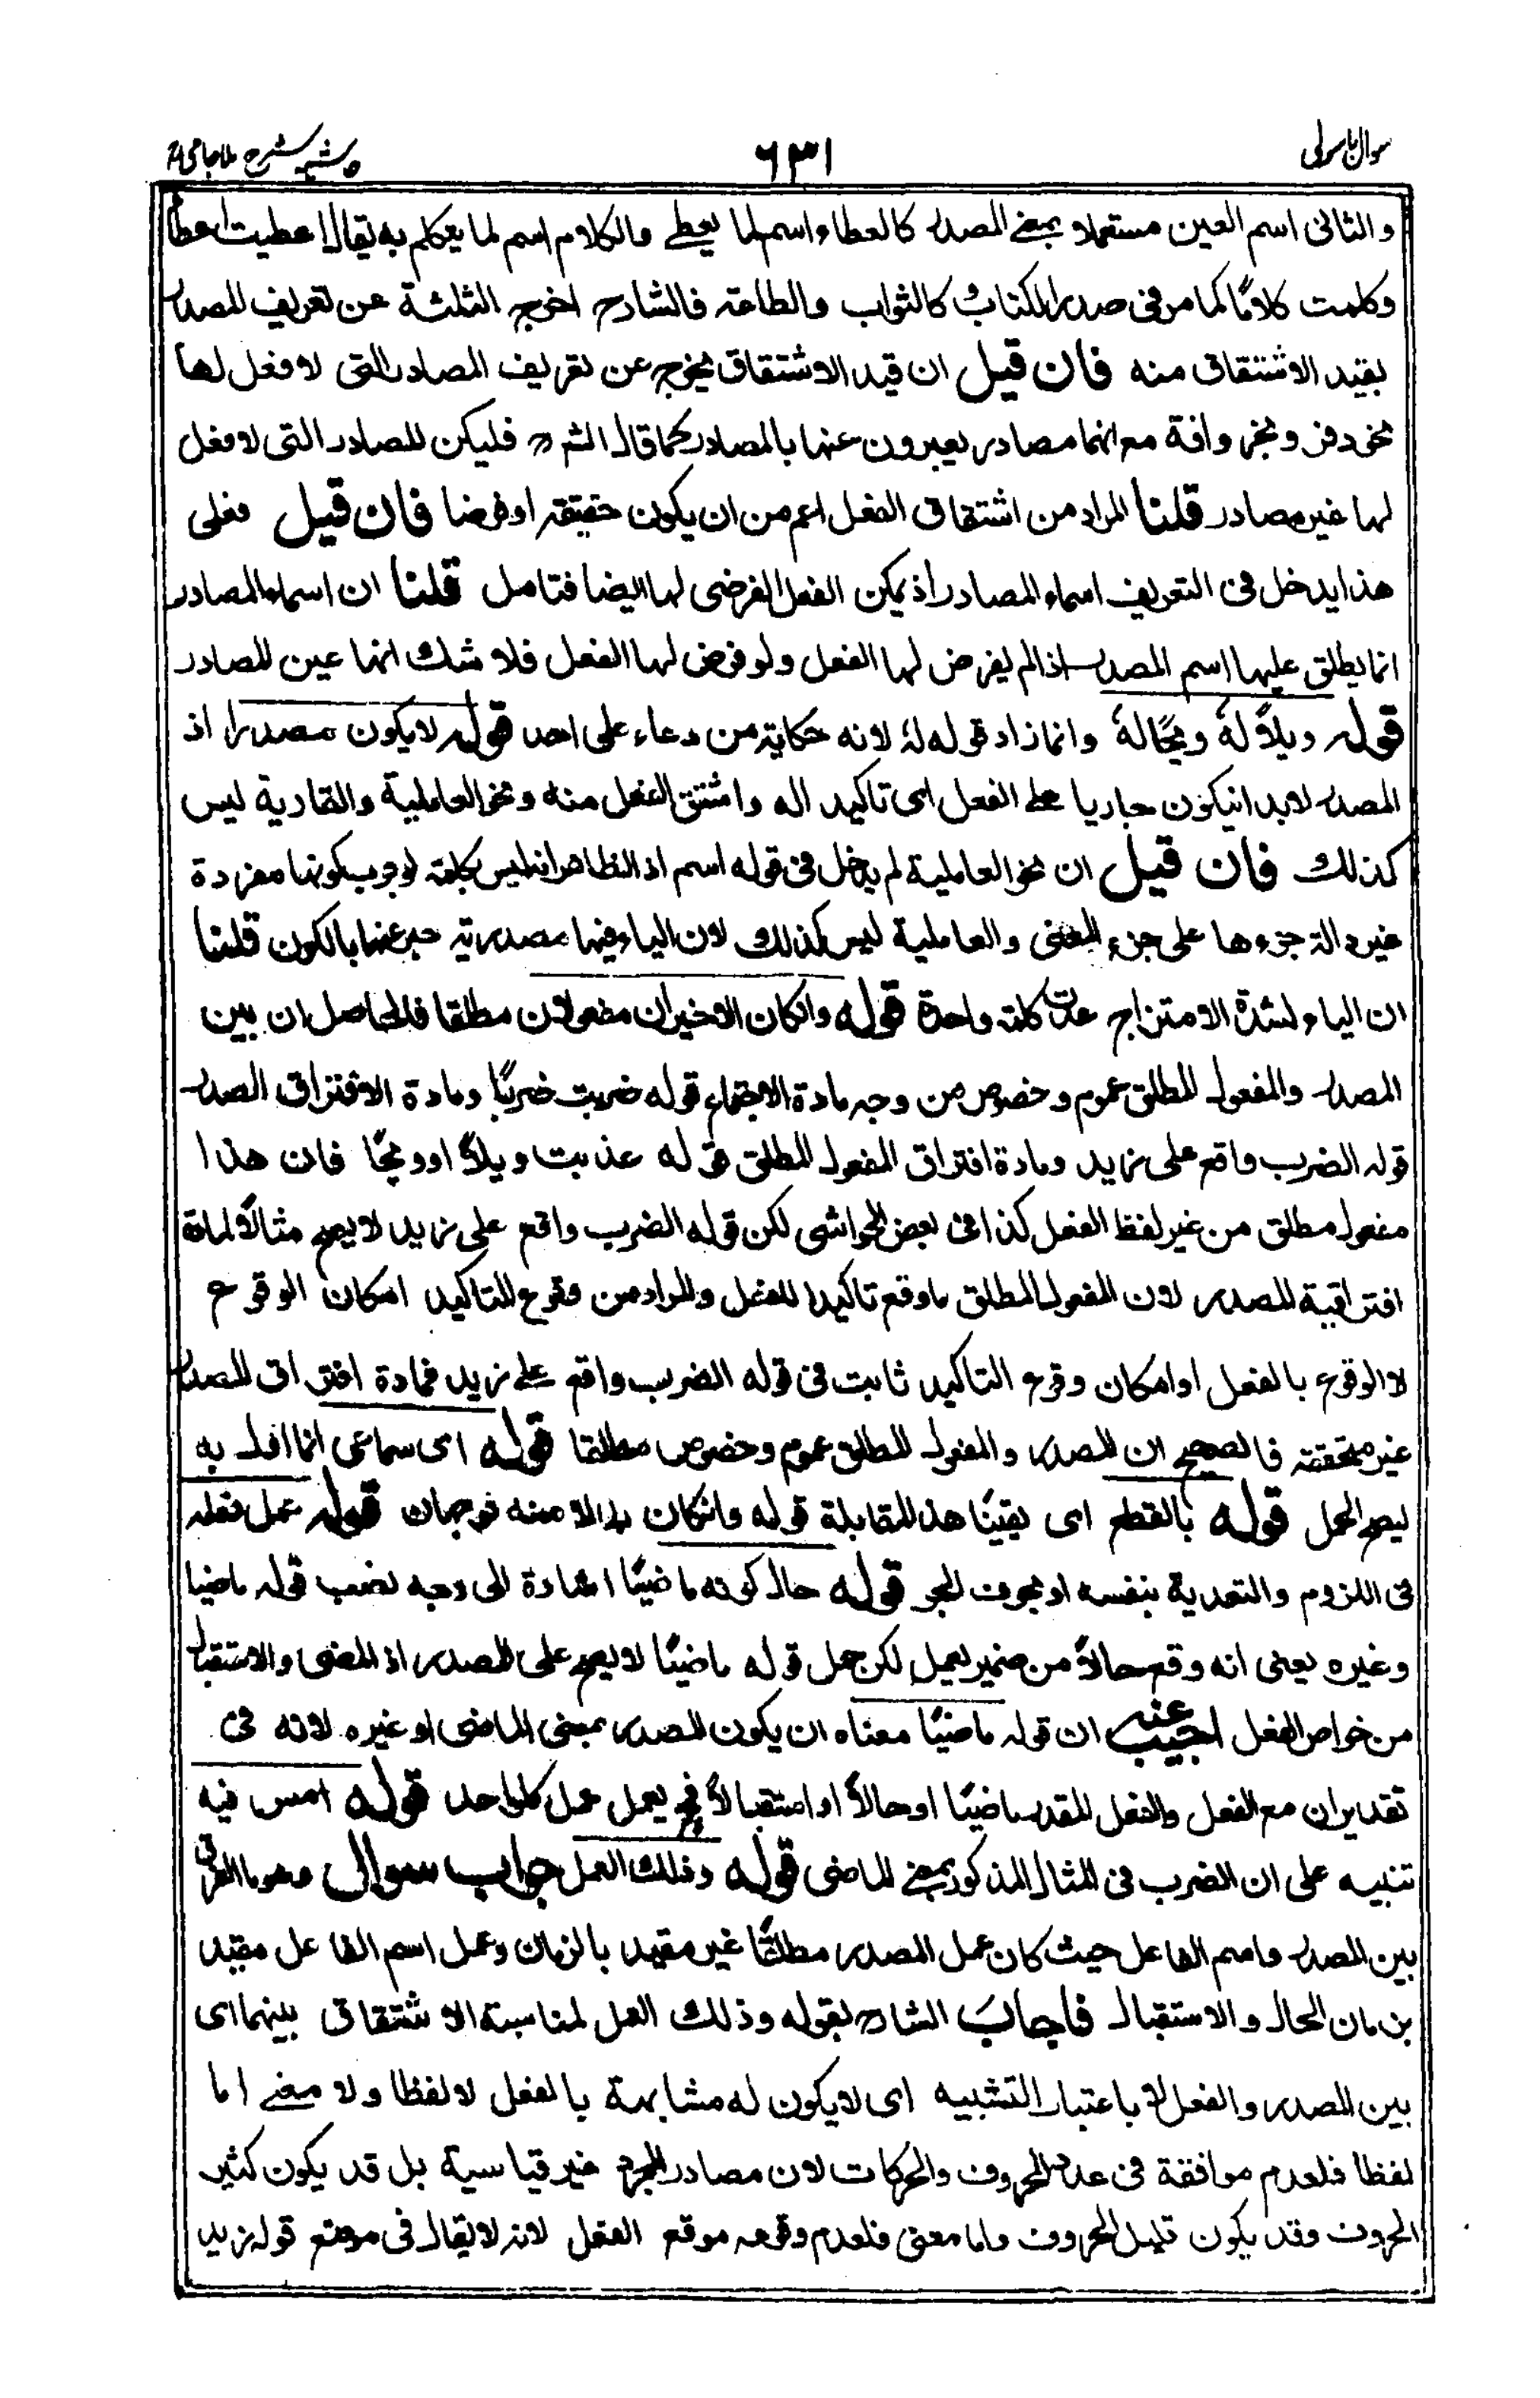 سوال باسولی
٦٣١
حاشیہ شرح ملا جامی
والثانی اسم العین مستعملا بمعنے المصدر کالعطاء اسم لما یعطے والکلام اسم لما یتکلم به یقال اعطیت اعطاء
وکلمت کلامًا کما مر فی صدر الکتاب و کالثواب والطاعة فالشارح اخرج الثلثة عن تعریف المصدر
بقید الاشتقاق منه فان قیل ان قید الاشتقاق یخرج عن تعریف المصادر التی لا فعل لها
نحو دفر و بخر وافة مع انها مصادر یعبرون عنها بالمصادر کما قال الشرح فلیکن المصادر التی لا فعل
لها غیر مصادر قلنا المراد من اشتقاق الفعل اعم من ان یکون حقیقة او فرضا فان قیل فعلی
هذا یدخل فی التعریف اسماء المصادر اذ یمکن الفعل الفرضی لها ایضا فتامل قلنا ان اسماء المصادر
انما یطلق علیها اسم المصدر اذا لم یفرض لها الفعل ولو فرض لها الفعل فلا شك انها عین المصادر
قوله ویلاً لهٗ ویحًا لهٗ وانما زاد قوله لهٗ لانه حکایة من دعاء علی احد قوله لا یکون مصدرا اذ
المصدر لابد انیکون جاریا علے الفعل ای تاکید اله واشتق الفعل منه ونحو العاملیة والقادریة لیس
کذلك فان قیل ان نحو العاملیة لم یدخل فی قوله اسم اذ الظاهر انه لیس بکلمة لوجوب کونها مفردة
غیر دالة جزءها علی جزء المعنی والعاملیة لیس کذلك لان الیاء فیها مصدریة عبر عنها بالکون قلنا
ان الیاء لشدة الامتزاج عدت کلمة واحدة قوله وانکان الاخیران مفعولان مطلقا فالحاصل ان بین
المصدر والمفعول المطلق عموم وخصوص من وجه مادة الاجتماع قوله ضربت ضربًا ومادة الافتراق المصدر
قوله الضرب واقع علی زید ومادة افتراق المفعول المطلق قوله عذبت ویلاً او ویحًا فان هذا
مفعول مطلق من غیر لفظ الفعل کذا فی بعض الحواشی لکن قوله الضرب واقع علی زید لا یصح مثالاً لمادة
افتراقیة للمصدر لان المفعول المطلق ما وقع تاکیدا للفعل والمراد من وقوع التاکید امکان الوقوع
لا الوقوع بالفعل او امکان وقوع التاکید ثابت فی قوله الضرب واقع علے زید فمادة افتراق المصدر
غیر متحققة فالصحیح ان المصدر والمفعول المطلق عموم وخصوص مطلقا قوله ای سماعی انما اول به
لیصح الحمل قوله بالقطع ای یقینًا هذا المقابلة قوله وانکان بدالا منه فوجهان قوله عمل فعله
فی اللزوم والتعدیة بنفسه او بحرف الجر قوله حال کونه ماضیًا اشارة الی وجه نصب قوله ماضیا
وغیره یعنی انه وقع حالاً من ضمیر یعمل لکن حمل قوله ماضیًا لا یصح علی المصدر اذ المضی والاستقبال
من خواص الفعل اجیب عنه ان قوله ماضیًا معناه ان یکون المصدر بمعنی الماضی او غیره لانه فی
تقدیر ان مع الفعل والفعل المقدر ماضیًا او حالاً او استقبالاً فح یعمل عمل کل واحد قوله امس فیه
تنبیه علی ان الضرب فی المثال المذکور بمعنے الماضی قوله وذلك العمل جواب سوال وهو ما الفرق
بین المصدر واسم الفاعل حیث کان عمل المصدر مطلقًا غیر مقید بالزمان وعمل اسم الفاعل مقید
بزمان الحال والاستقبال فاجابَ الشارح بقوله وذلك العمل لمناسبة الاشتقاق بینهما ای
بین المصدر والفعل لا باعتبار التشبیه ای لا یکون له مشابهة بالفعل لا لفظا ولا معنے اما
لفظا فلعدم موافقة فی عدد الحروف والحرکات لان مصادر المجرد غیر قیاسیة بل قد یکون کثیر
الحروف وقد یکون قلیل الحروف واما معنی فلعدم وقوعه موقع الفعل لانه لا یقال فی موضع قوله زید